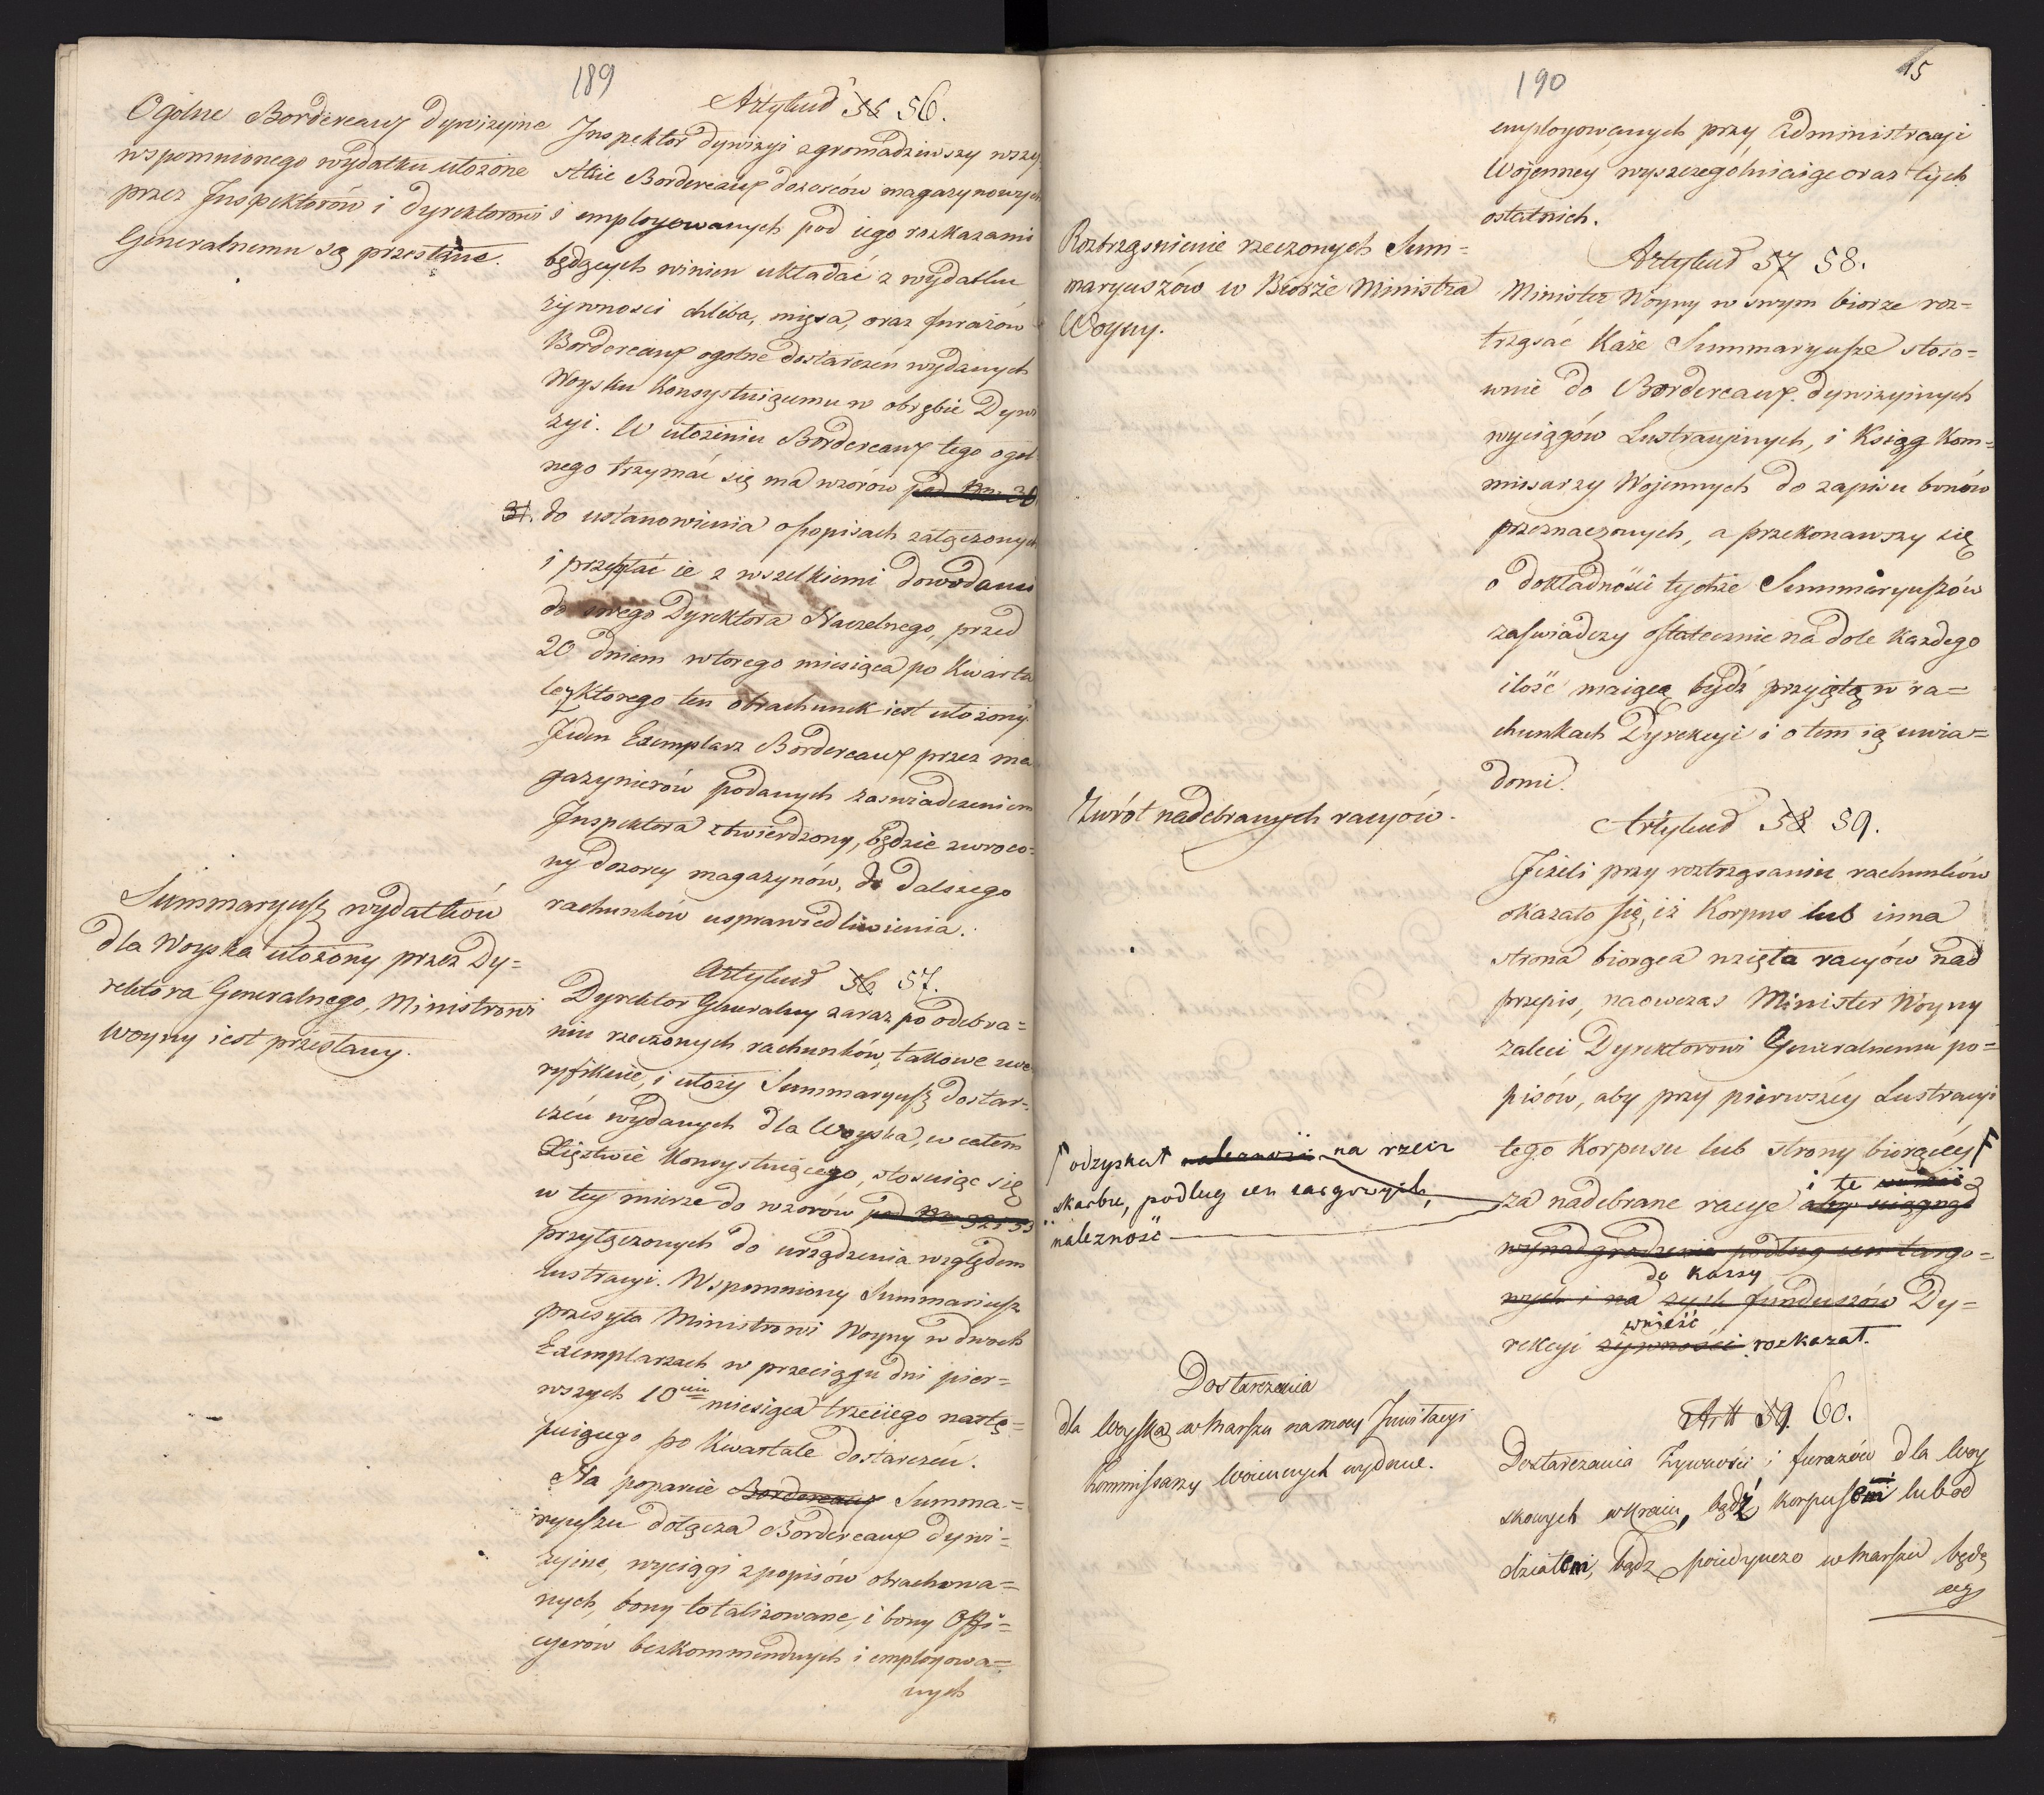 189
Ogólne Bordereaux dywizyine
wspomnionego wydatku ułożone
przez Inspektorów i Dyrektorowi
Generalnemu są przesłane.
Artykuł 55 56.
Inspektor dywizyi zgromadziwszy wszy
stkie Bordereaux dozorców magazynowych
i employowanych pod iego rozkazami
będących winien układać z wydatku
żywności chleba, mięsa, oraz furażów
Bordereaux ogolne dostarczeń wydanych
Woysku Konsystuiącemu w obrębie Dywi
zyi. W ułożeniu Bordereaux tego ogol
nego trzymać się ma wzorów pod No. 30
31. do ustanowienia o popisach załączonych
i przesłać ie z wszelkiemi dowodami
do swego Dyrektora Naczelnego, przed
20 dniem wtorego miesiąca po Kwarta
le, z ktorego ten obrachunek iest ułożony.
Jeden Exemplarz Bordereaux przez ma
gazynierów podanych zaswiadczeniem
Inspektora stwierdzony, będzie zwroco=
ny dozorcy magazynów, do dalszego
rachunków usprawiedliwienia.
Summaryusz wydatków
dla Woyska ułożony przez Dy=
rektora Generalnego, Ministrowi
Woyny iest przesłany.
Artykuł 56 57.
Dyrektor Generalny zaraz po odebra=
niu rzeczonych rachunków, takowe zwe
ryfikuie, i ułoży Summaryusz dostar=
czeń wydanych dla Woyska, w całem
Xięstwie Konsystuiącego, stosuiąc się
w tey mierze do wzorów pod No 32 i 33
przyłączonych do urządzenia względem
lustracyi. Wspomniony Summariusz
przesyła Ministrowi Woyny w dwoch
Exemplarzach w przeciągu dni pier=
wszych 10ciu miesiąca trzeciego nastę=
puiącego po Kwartale dostarczeń.
Na poparcie Bordereaux Summa=
ryuszu dołącza Bordereaux dywi=
zyine, wyciągi z popisów obrachowa=
nych, bony totalizowane, i bony Offi=
cyerów bezkommendnych i employowa=
nych
190
15
employowanych przy Administracyi
Wojenney wyszczególniaiące oraz tych
ostatnich.
Roztrząsnienie rzeczonych Sum=
maryuszów w Biórże Ministra
Woyny.
Artykuł 57 58.
Minister Woyny w swym biorze roz=
trząsać każe Summaryusze stoso=
wnie do Bordereaux dywizyinych
wyciągów Lustracyinych, i Ksiąg Kom=
missarzy Wojennych do zapisu bonów
przeznaczonych, a przekonawszy się
o dokładności tychże Summaryuszów
zaświadczy ostatecznie na dole każdego
ilość maiącą bydź przyiętą w ra=
chunkach Dyrekcyi i o tem ią uwia=
domi.
Zwrót nadebranych racyów.
Artykuł 58 59.
Jeżeli przy roztrząsaniu rachunków
okazało się, iż Korpus lub inna
strona biorąca wzięła racyów nad
przepis, naowczas Minister Woyny
zaleci Dyrektorowi Generalnemu po=
pisów, aby przy pierwszéy Lustracyi
tego Korpusu lub strony biorącéy F
F odzyskał należność na rzecz
skarbu, podług cen targowych,
należność
i te
za nadebrane racye aby ściągnął
wynadgrodzenie podług cen targo=
do kassy
wych i na zysk funduszów Dy=
wnieść
rekcyi żywności rozkazał.
Dostarczenia
dla Woyska w Marszu na mocy Juwitacyi
Kommissarzy Woiennych wydane.
Art 59. 60.
Dostarczania Żywności i furażów dla Woy
skowych w Kraiu, bądź korpusem lub od
działem, bądz poiedynczo w Marszu będą
cy